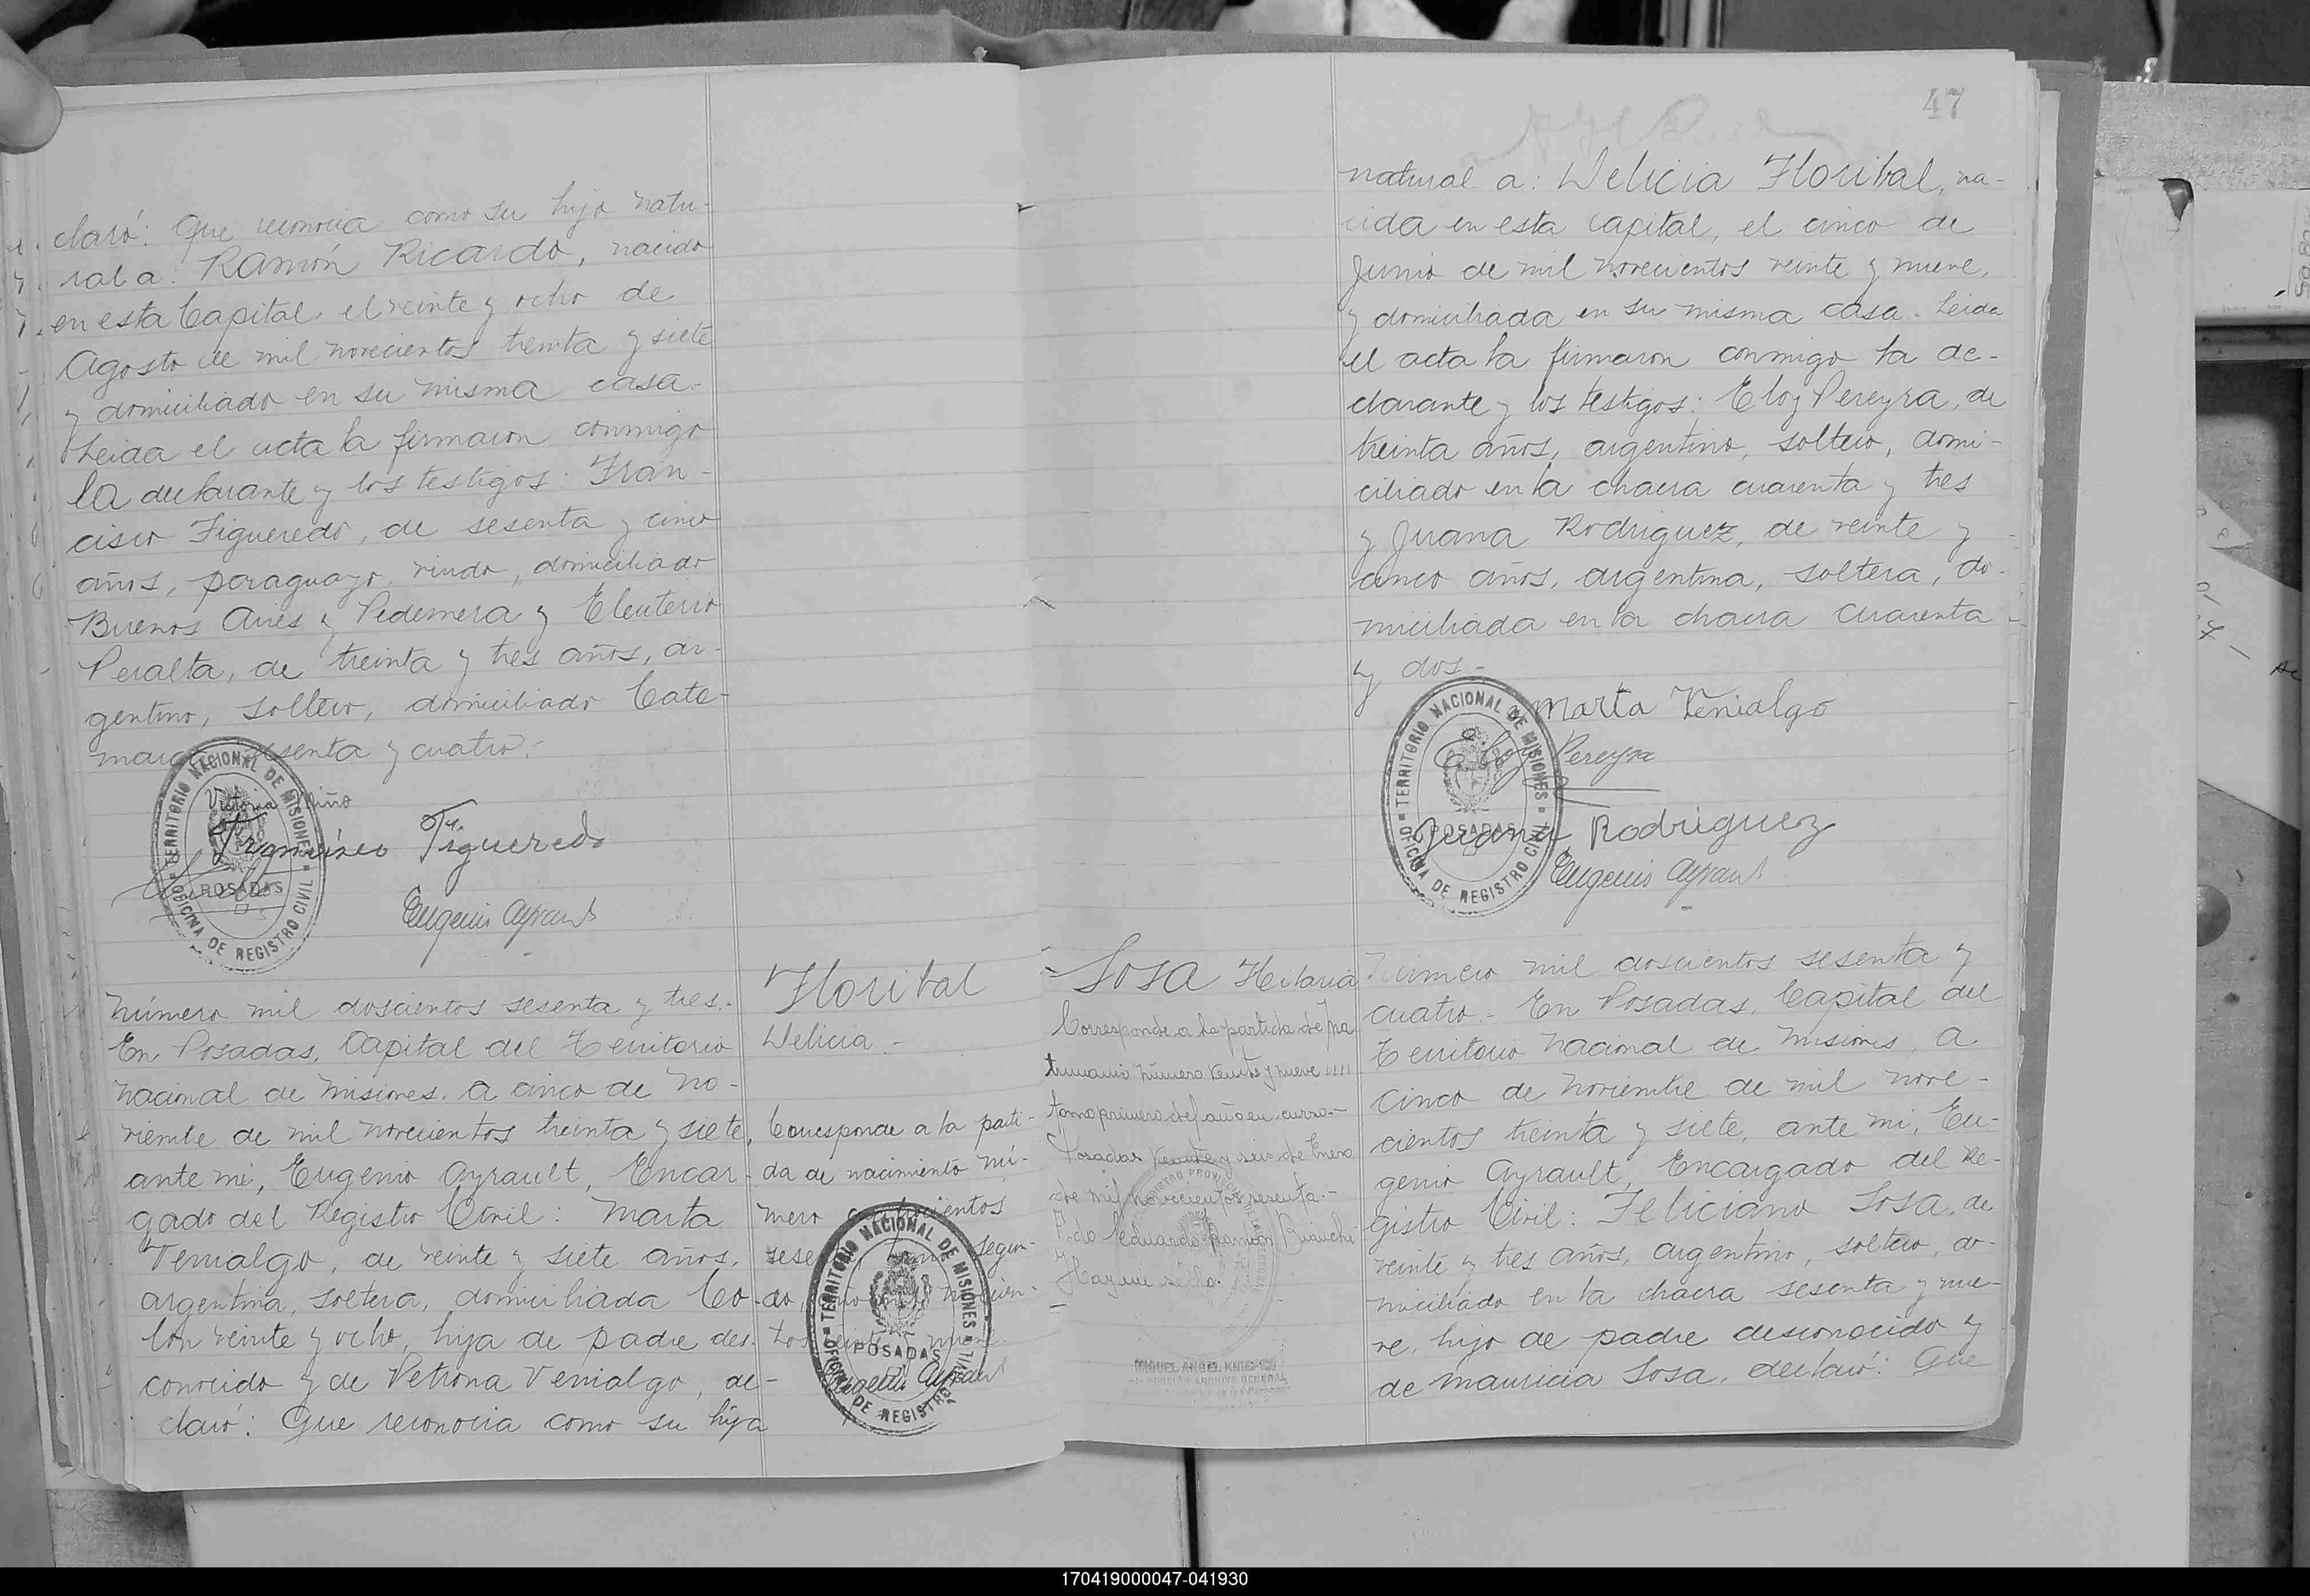 claró: Que reconocia como su hijo natu-
ral a: Ramón Ricardo, nacido
en esta Capital, el veinte y ocho de
Agosto de mil novecientos treinta y siete
y domiciliado en su misma casa.-
Leida el acta la firmaron conmigo
la declarante y los testigos: Fran-
cisco Figueredo, de sesenta y cinco
años, paraguayo, viudo, domiciliado
Buenos Aires y Pedernera y Eleuterio
Peralta, de treinta y tres años, ar-
gentino, soltero, domiciliado Cata-
marca senta y cuatro.-
Victoria Miño
Francisco Figueredo
Eugenio Ayrault
TERRITORIO NACIONAL DE MISIONES
OFICINA DE REGISTRO CIVIL
POSADAS
Número mil doscientos sesenta y tres.
En Posadas, Capital del Territorio
Nacional de Misiones, a cinco de No-
viembre de mil novecientos treinta y siete,
ante mi, Eugenio Ayrault, Encar-
gado del Registro Civil: Marta
Venialgo, de veinte y siete años,
argentina, soltera, domiciliada Co-
lón veinte y ocho, hija de padre des-
conocido y de Petrona Venialgo, de-
claró: Que reconocia como su hija
Florital
Welicia.-
Corresponde a la parti-
da de nacimiento nú-
mero
segun-
do,
Eugenio Ayrault
TERRITORIO NACIONAL DE MISIONES
OFICINA DE REGISTRO CIVIL
POSADAS
47
natural a: Welicia Florital, na-
cida en esta Capital, el cinco de
Junio de mil novecientos veinte y nueve,
y domiciliada en su misma casa.- Leida
el acta la firmaron conmigo la de-
clarante y los testigos: Eloy Pereyra, de
treinta años, argentino, soltero, domi-
ciliado en la chacra cuarenta y tres
y Juana Rodriguez, de veinte y
cinco años, argentina, soltera, do-
miciliada en la chacra cuarenta
y dos.-
Marta Venialgo
Eloy Pereyra
Juana Rodriguez
Eugenio Ayrault
TERRITORIO NACIONAL DE MISIONES
OFICINA DE REGISTRO CIVIL
POSADAS
Sosa Hilaria
Corresponde a la partida de ma
trimonio número veinte y nueve
tomo primero del año en curso.-
Posadas veinte y seis de Enero
de mil novecientos sesenta.-
Fdo Eduardo Ramón Bianchi
Hay un sello.
MIGUEL ANGEL
DIVISIÓN ARCHIVO GENERAL
Número mil doscientos sesenta y
cuatro.- En Posadas, Capital del
Territorio Nacional de Misiones, a
cinco de Noviembre de mil nove-
cientos treinta y siete, ante mi, Eu-
genio Ayrault, Encargado del Re-
gistro Civil: Feliciano Sosa, de
veinte y tres años, argentino, soltero, do-
miciliado en la chacra sesenta y nue-
ve, hijo de padre desconocido y
de Mauricia Sosa, declaró: Que
170419000047-041930